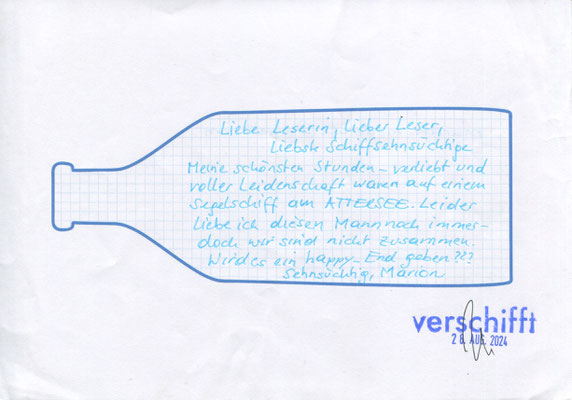 Liebe Leserin, Lieber Leser,
Liebste Schiffsehnsüchtige
Meine schönsten Stunden - verliebt und
voller Leidenschaft waren auf einem
Segelschiff am ATTERSEE. Leider
liebe ich diesen Mann noch immer-
doch wir sind nicht zusammen.
Wird es ein happy-End geben???
Sehnsüchtig, Marion
verschifft
28. AUG. 2024